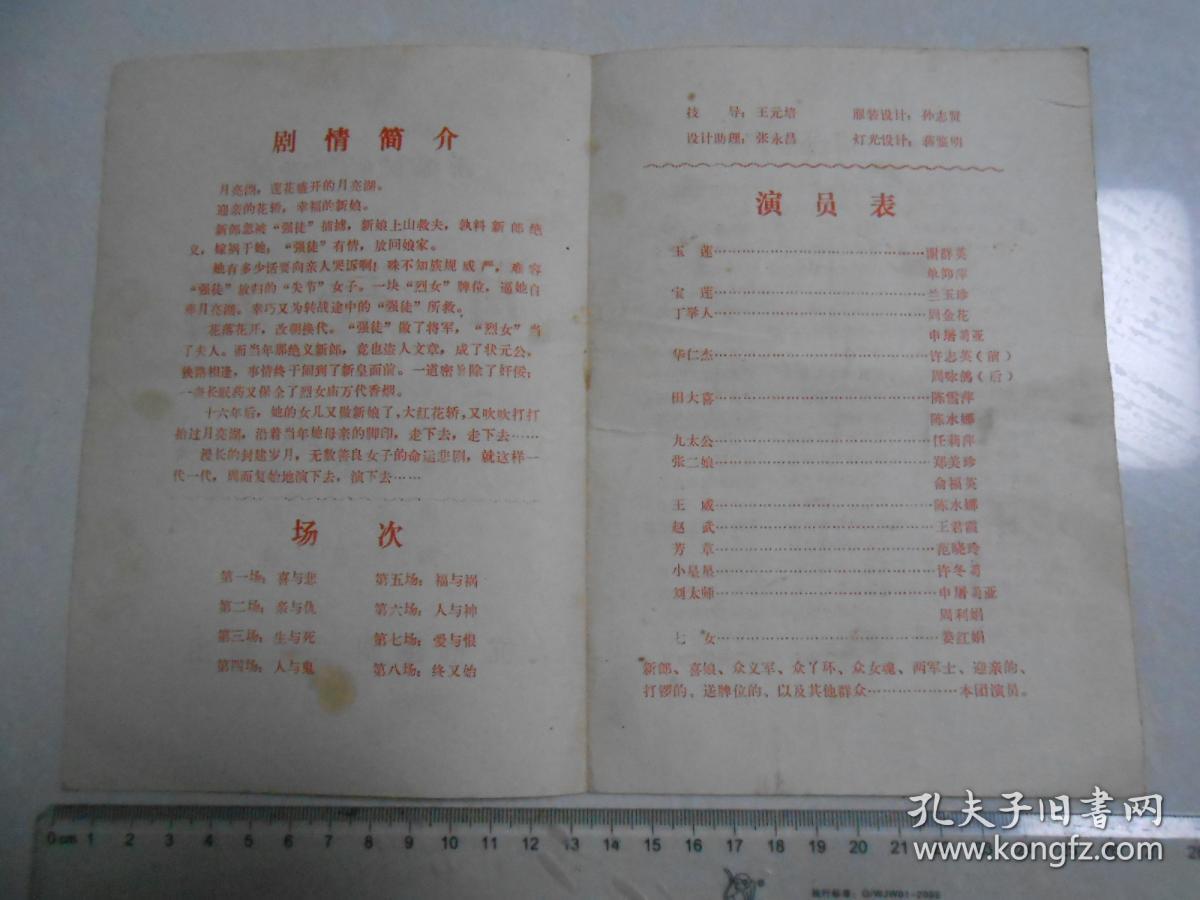 剧情简介
月亮湖，莲花盛开的月亮湖。
迎亲的花轿，幸福的新娘。
新郎忽被“强徒”捕掳，新娘上山救夫，孰料新郎绝
义，嫁祸于她；“强徒”有情，放回娘家。
她有多少话要向亲人哭诉啊！殊不知族规威严，难容
“强徒”放归的“失节”女子。一块“烈女”牌位，逼她自
弃月亮湖。幸巧又为转战途中的“强徒”所救。
花落花开，改朝换代。“强徒”做了将军，“烈女”当
了夫人。而当年那绝义新郎，竟也盗人文章，成了状元公。
狭路相逢，事情终于闹到了新皇面前。一道密旨除了奸佞；
一壶长眠药又保全了烈女庙万代香烟。
十六年后，她的女儿又做新娘了，大红花轿，又吹吹打打
抬过月亮湖，沿着当年她母亲的脚印，走下去，走下去……
漫长的封建岁月，无数善良女子的命运悲剧，就这样一
代一代，周而复始地演下去，演下去……
场次
第一场：喜与悲 第五场：福与祸
第二场：亲与仇 第六场：人与神
第三场：生与死 第七场：爱与恨
第四场：人与鬼 第八场：终又始
技导：王元培 服装设计：孙志贤
设计助理：张永昌 灯光设计：蒋鉴明
演员表
玉莲……谢群英
单仰萍
宝莲……兰玉珍
丁举人……周金花
申屠菊亚
华仁杰……许志英（前）
周咏鸽（后）
田大喜……陈雪萍
陈水娜
九太公……任莉萍
张二娘……郑美珍
俞福英
王威……陈水娜
赵武……王君霞
芳草……范晓玲
小星星……许冬菊
刘太师……申屠菊亚
周利娟
七女……娄红娟
新郎、喜娘、众义军、众丫环、众女魂、两军士、迎亲的、
打锣的、送牌位的、以及其他群众……本团演员。
0cm 1 2 3 4 5 6 7 8 9 10 11 12 13 14 15 16 17 18 19 20 21
执行标准：Q/WJW01-2005
孔夫子旧书网
www.kongfz.com